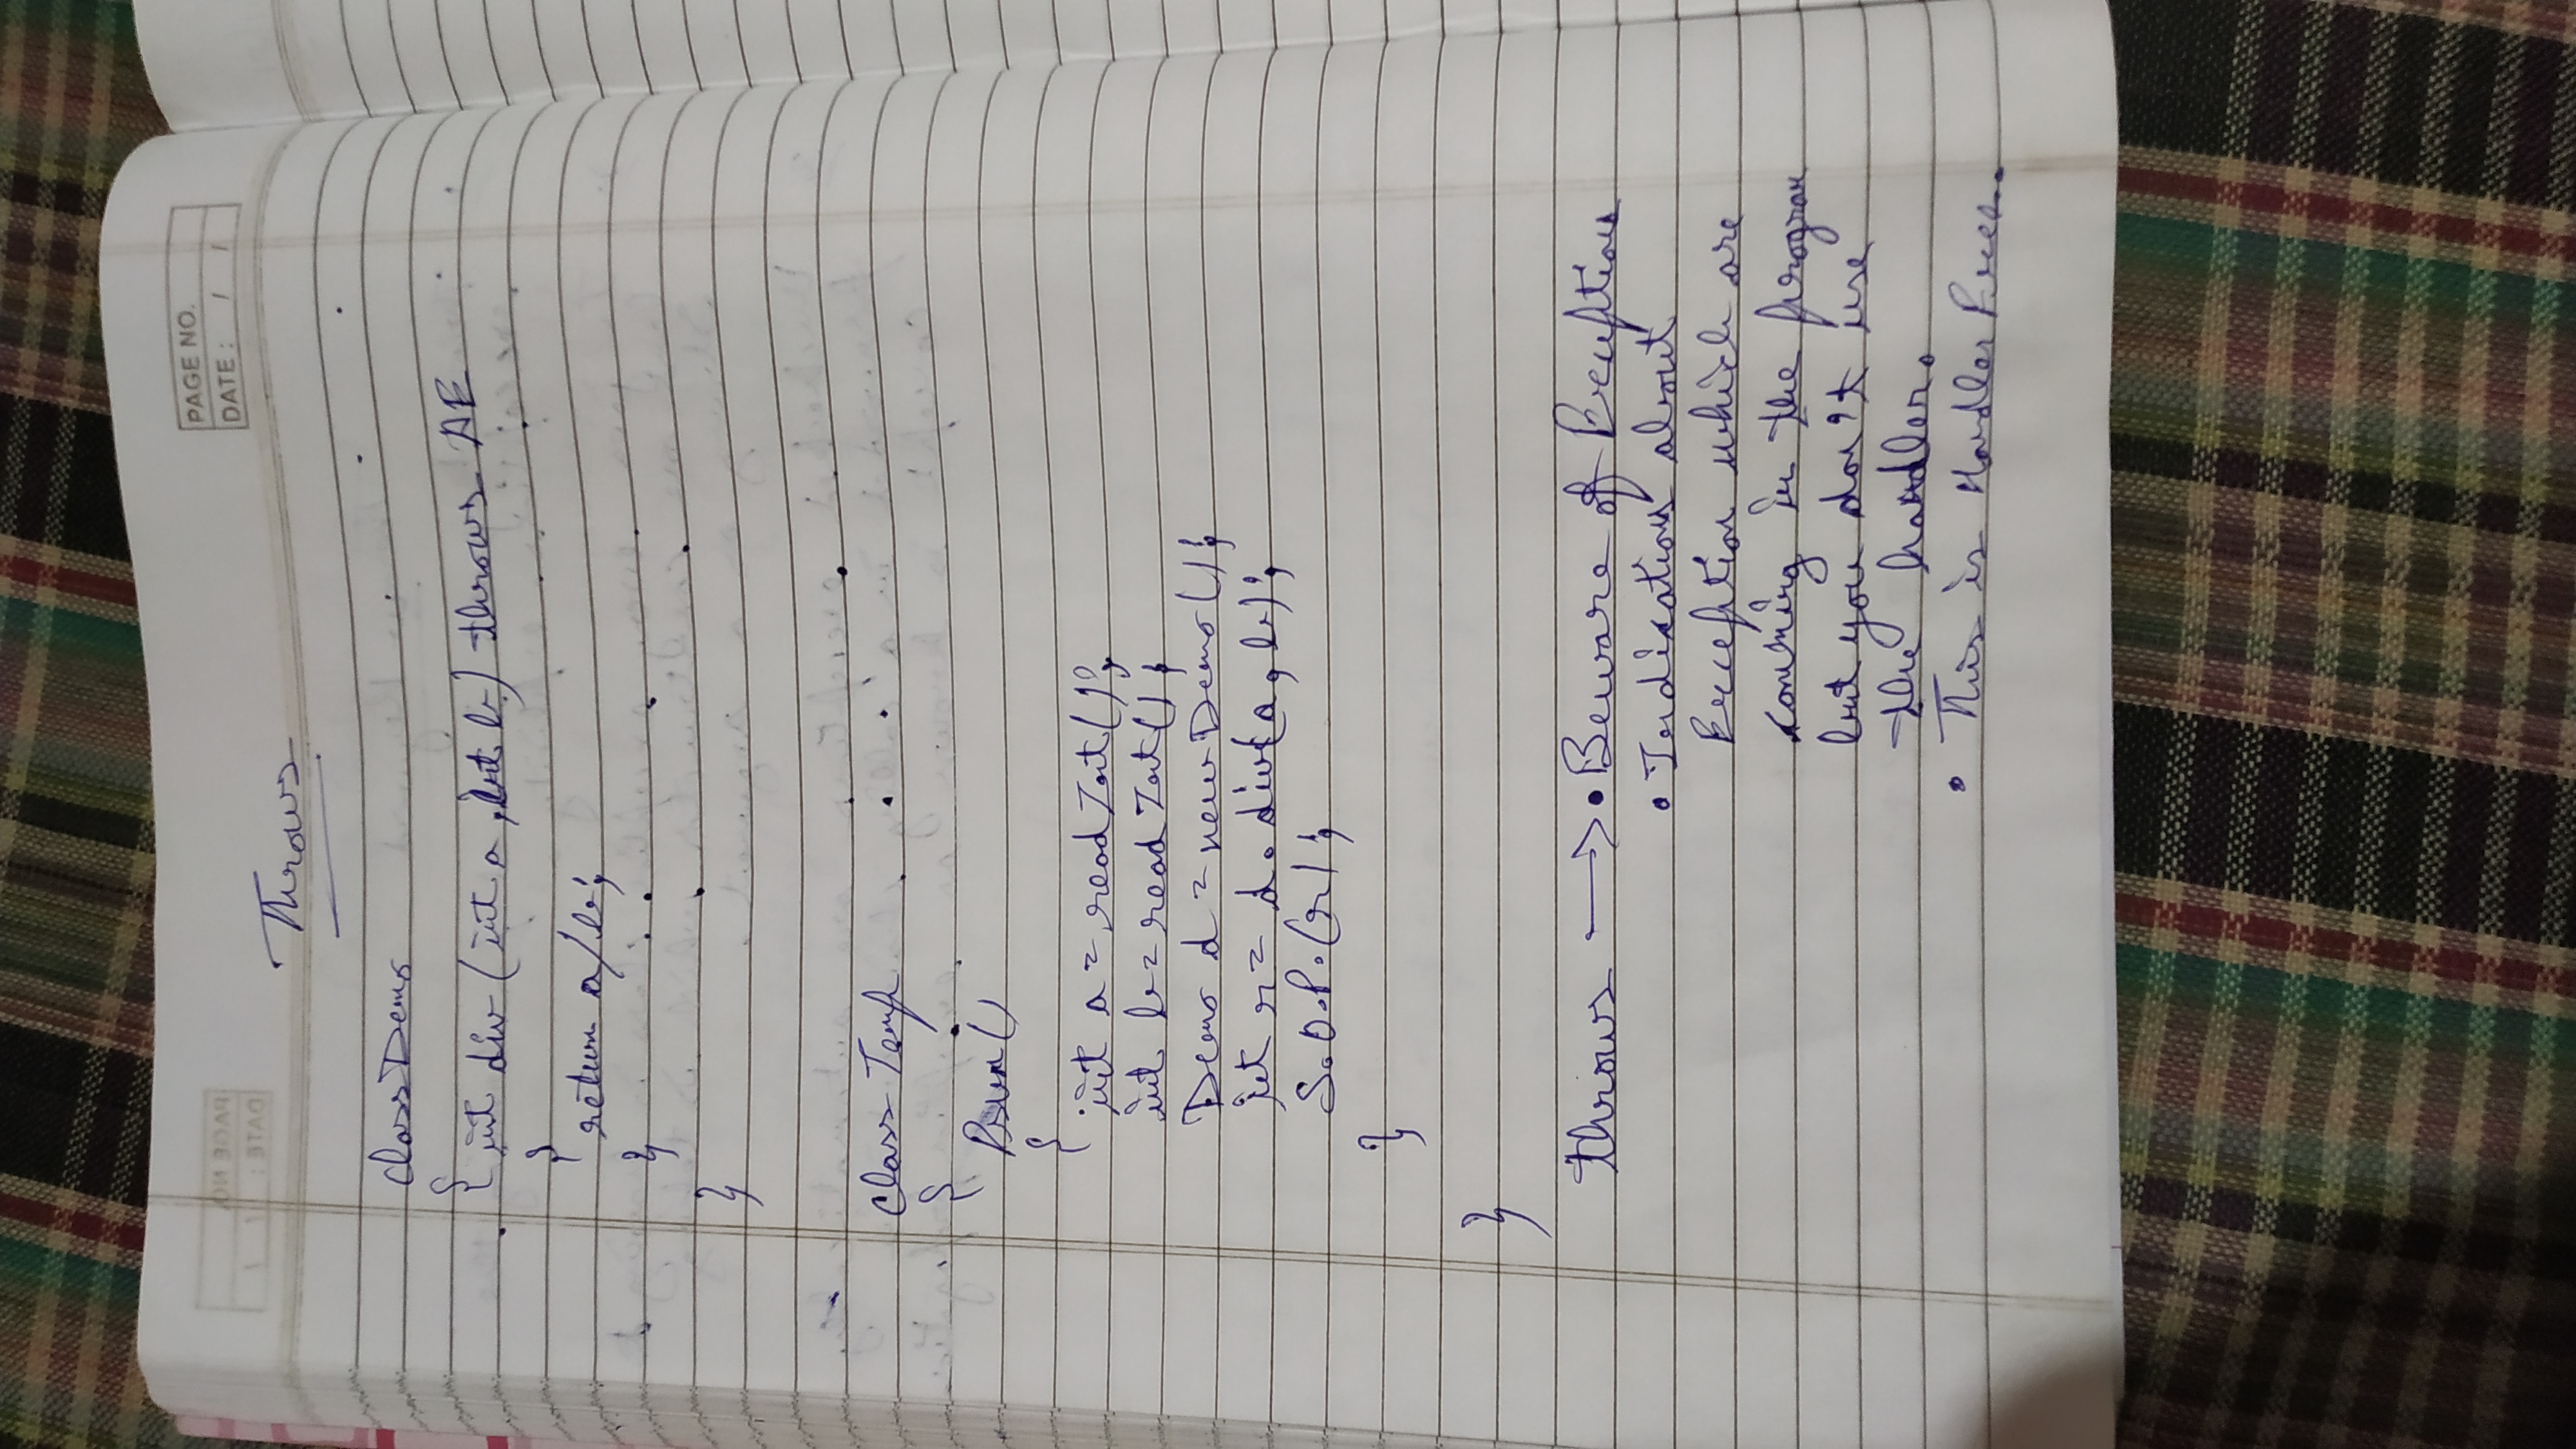 PAGE NO.
DATE : / /
Throws
class Demo
{
int div (int a , int b) throws AE
{
return a/b;
}
}
class Temp
{
Psvm()
{
int a = readInt();
int b = readInt();
Demo d = new Demo();
int r = d.div(a, b);
S.O.P.(r);
}
}
throws → • Beware of Exception
• Indication about
Exception which are
comming in the program
but you don't use
the handler.
• This is Handler